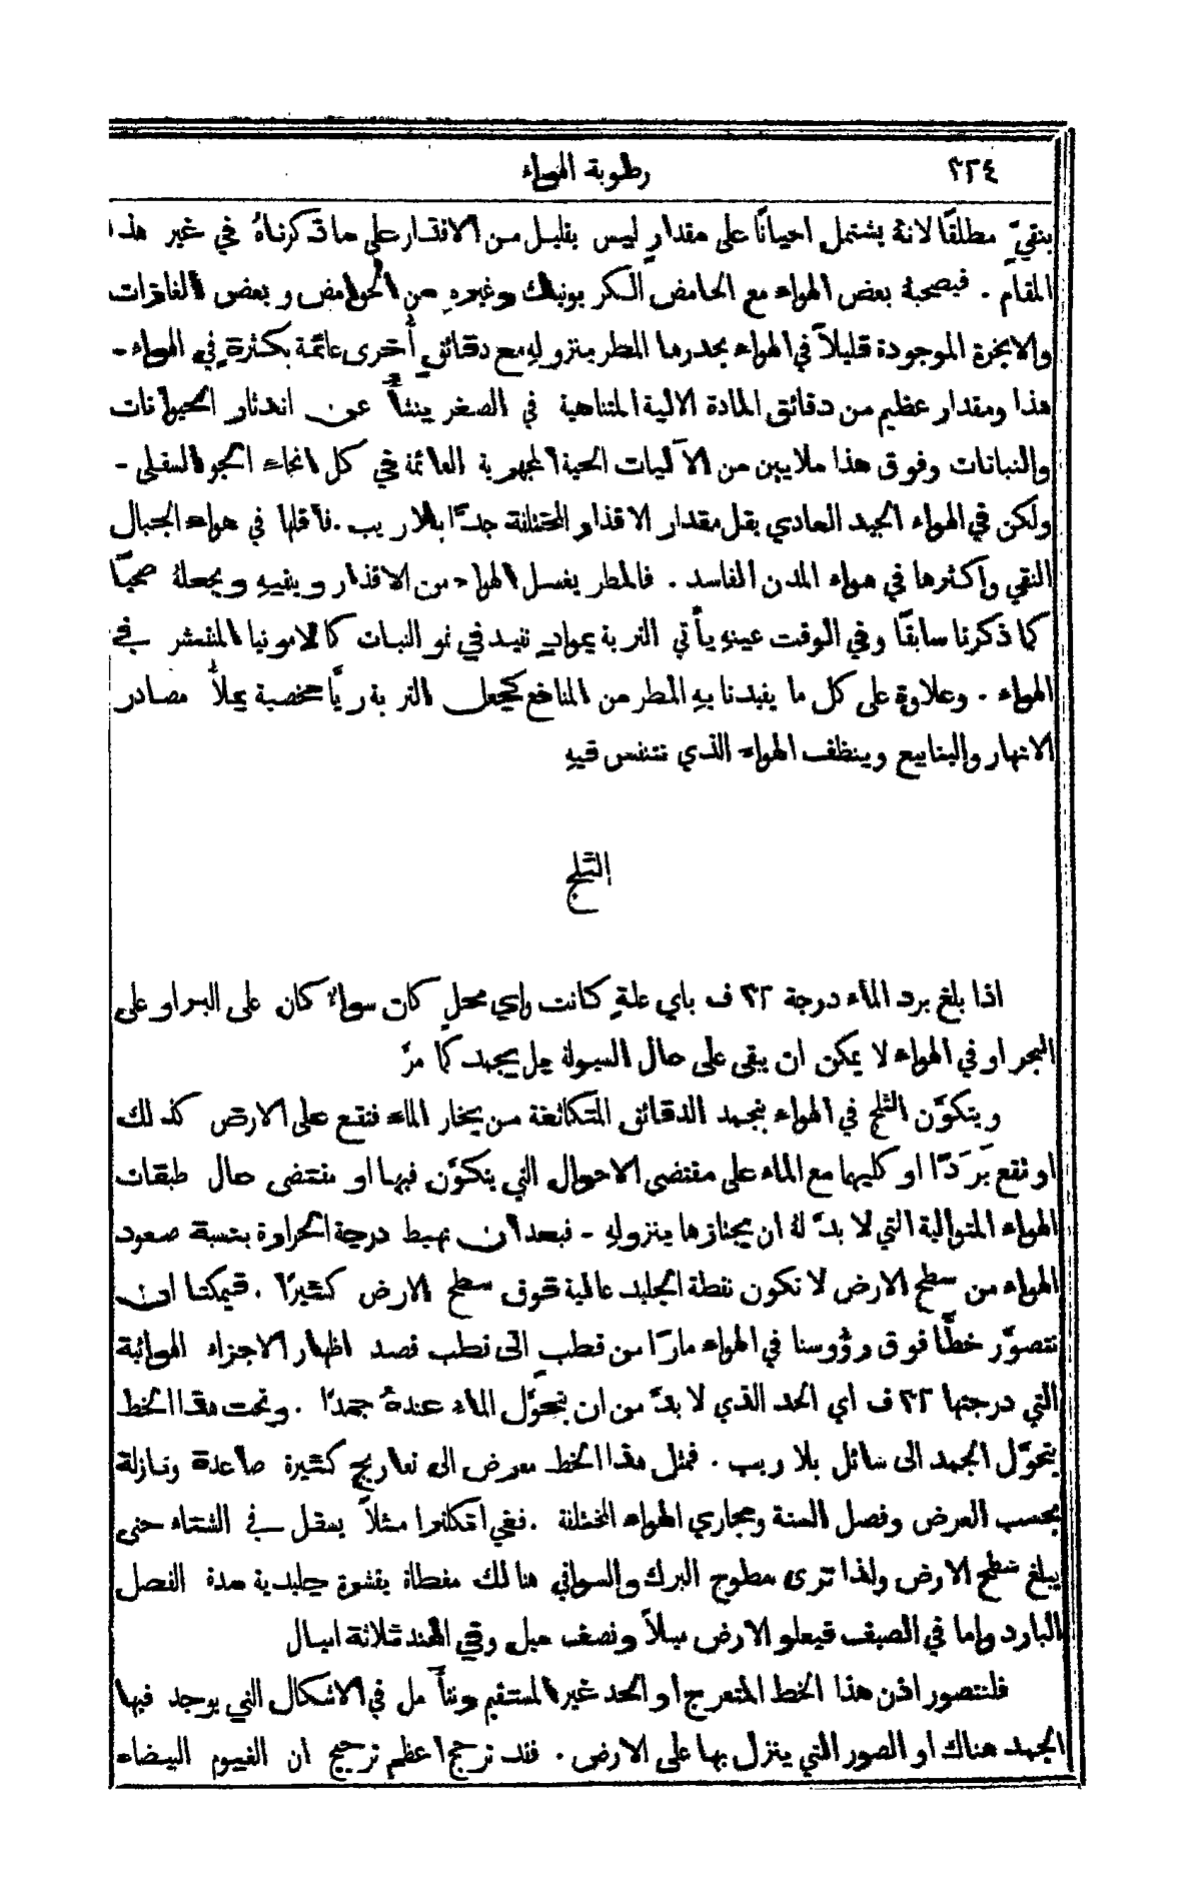 ٢٢٤
رطوبة الهواء
بنقيّ مطلقًا لانهُ يشتمل احيانًا على مقدارٍ ليس بقليل من الاقذار على ما ذكرناهُ في غير هذا
المقام . فيصحبهُ بعض الهواء مع الحامض الكربونيك وغيرهِ من الحوامض وبعض الغازات
والابخرة الموجودة قليلاً في الهواء يحدرها المطر بنزولهِ مع دقائق أخرى عائمة بكثرةٍ في الهواء -
هذا ومقدار عظيم من دقائق المادة الالية المتناهية في الصغر ينشأُ عن اندثار الحيوانات
والنباتات وفوق هذا ملايين من الآليات الحية المجهرية العائمة في كل انحاء الجو السفلي -
ولكن في الهواء الجيد العادي يقل مقدار الاقذار المختلفة جدًّا بلا ريب . فاقلها في هواء الجبال
النقي واكثرها في هواء المدن الفاسد . فالمطر يغسل الهواء من الاقذار وينقيهِ ويجعلهُ صحيًّا
كما ذكرنا سابقًا وفي الوقت عينهِ يأتي التربة بموادٍ تفيد في نمو النبات كالامونيا المنتشر في
الهواء . وعلاوة على كل ما يفيدنا بهِ المطر من المنافع كجعل التربة ريًّا مخصبة يملأ مصادر
الانهار والينابيع وينظف الهواء الذي نتنفس فيهِ
الثلج
اذا بلغ برد الماء درجة ٣٢ ف باي علةٍ كانت واي محلٍ كان سواءٌ كان على البر او على
البحر او في الهواء لا يمكن ان يبقى على حال السيولة بل يجمد كما مرَّ
ويتكوَّن الثلج في الهواء بتجمد الدقائق المتكاثفة من بخار الماء فتقع على الارض كذلك
او تقع بَرَدًا او كليهما مع الماء على مقتضى الاحوال التي يتكوَّن فيها او مقتضى حال طبقات
الهواء المتوالية التي لا بدَّ لهُ ان يجتازها بنزولهِ - فبعد ان تهبط درجة الحرارة بنسبة صعود
الهواء من سطح الارض لا تكون نقطة الجليد عالية فوق سطح الارض كثيرًا . فيمكننا ان
نتصوَّر خطًّا فوق رؤُوسنا في الهواء مارًّا من قطبٍ الى قطب قصد اظهار الاجزاء الهوائية
التي درجتها ٣٢ ف اي الحد الذي لا بدَّ من ان يتحوَّل الماء عندهُ جمدًا . وتحت هذا الخط
يتحوَّل الجمد الى سائل بلا ريب . فمثل هذا الخط معرض الى تعاريج كثيرة صاعدة ونازلة
بحسب العرض وفصل السنة ومجاري الهواء المختلفة . ففي انكلترا مثلاً يسفل في الشتاء حتى
يبلغ سطح الارض ولذا ترى سطوح البرك والسواقي هنالك مغطاة بقشرة جليدية مدة الفصل
البارد واما في الصيف فيعلو الارض ميلاً ونصف ميل وفي الهند ثلاثة اميال
فلنتصور اذن هذا الخط المتعرج او الحد غير المستقيم ونتأَمل في الاشكال التي يوجد فيها
الجمد هناك او الصور التي ينزل بها على الارض . فقد ترجح اعظم ترجيح أن الغيوم البيضاء